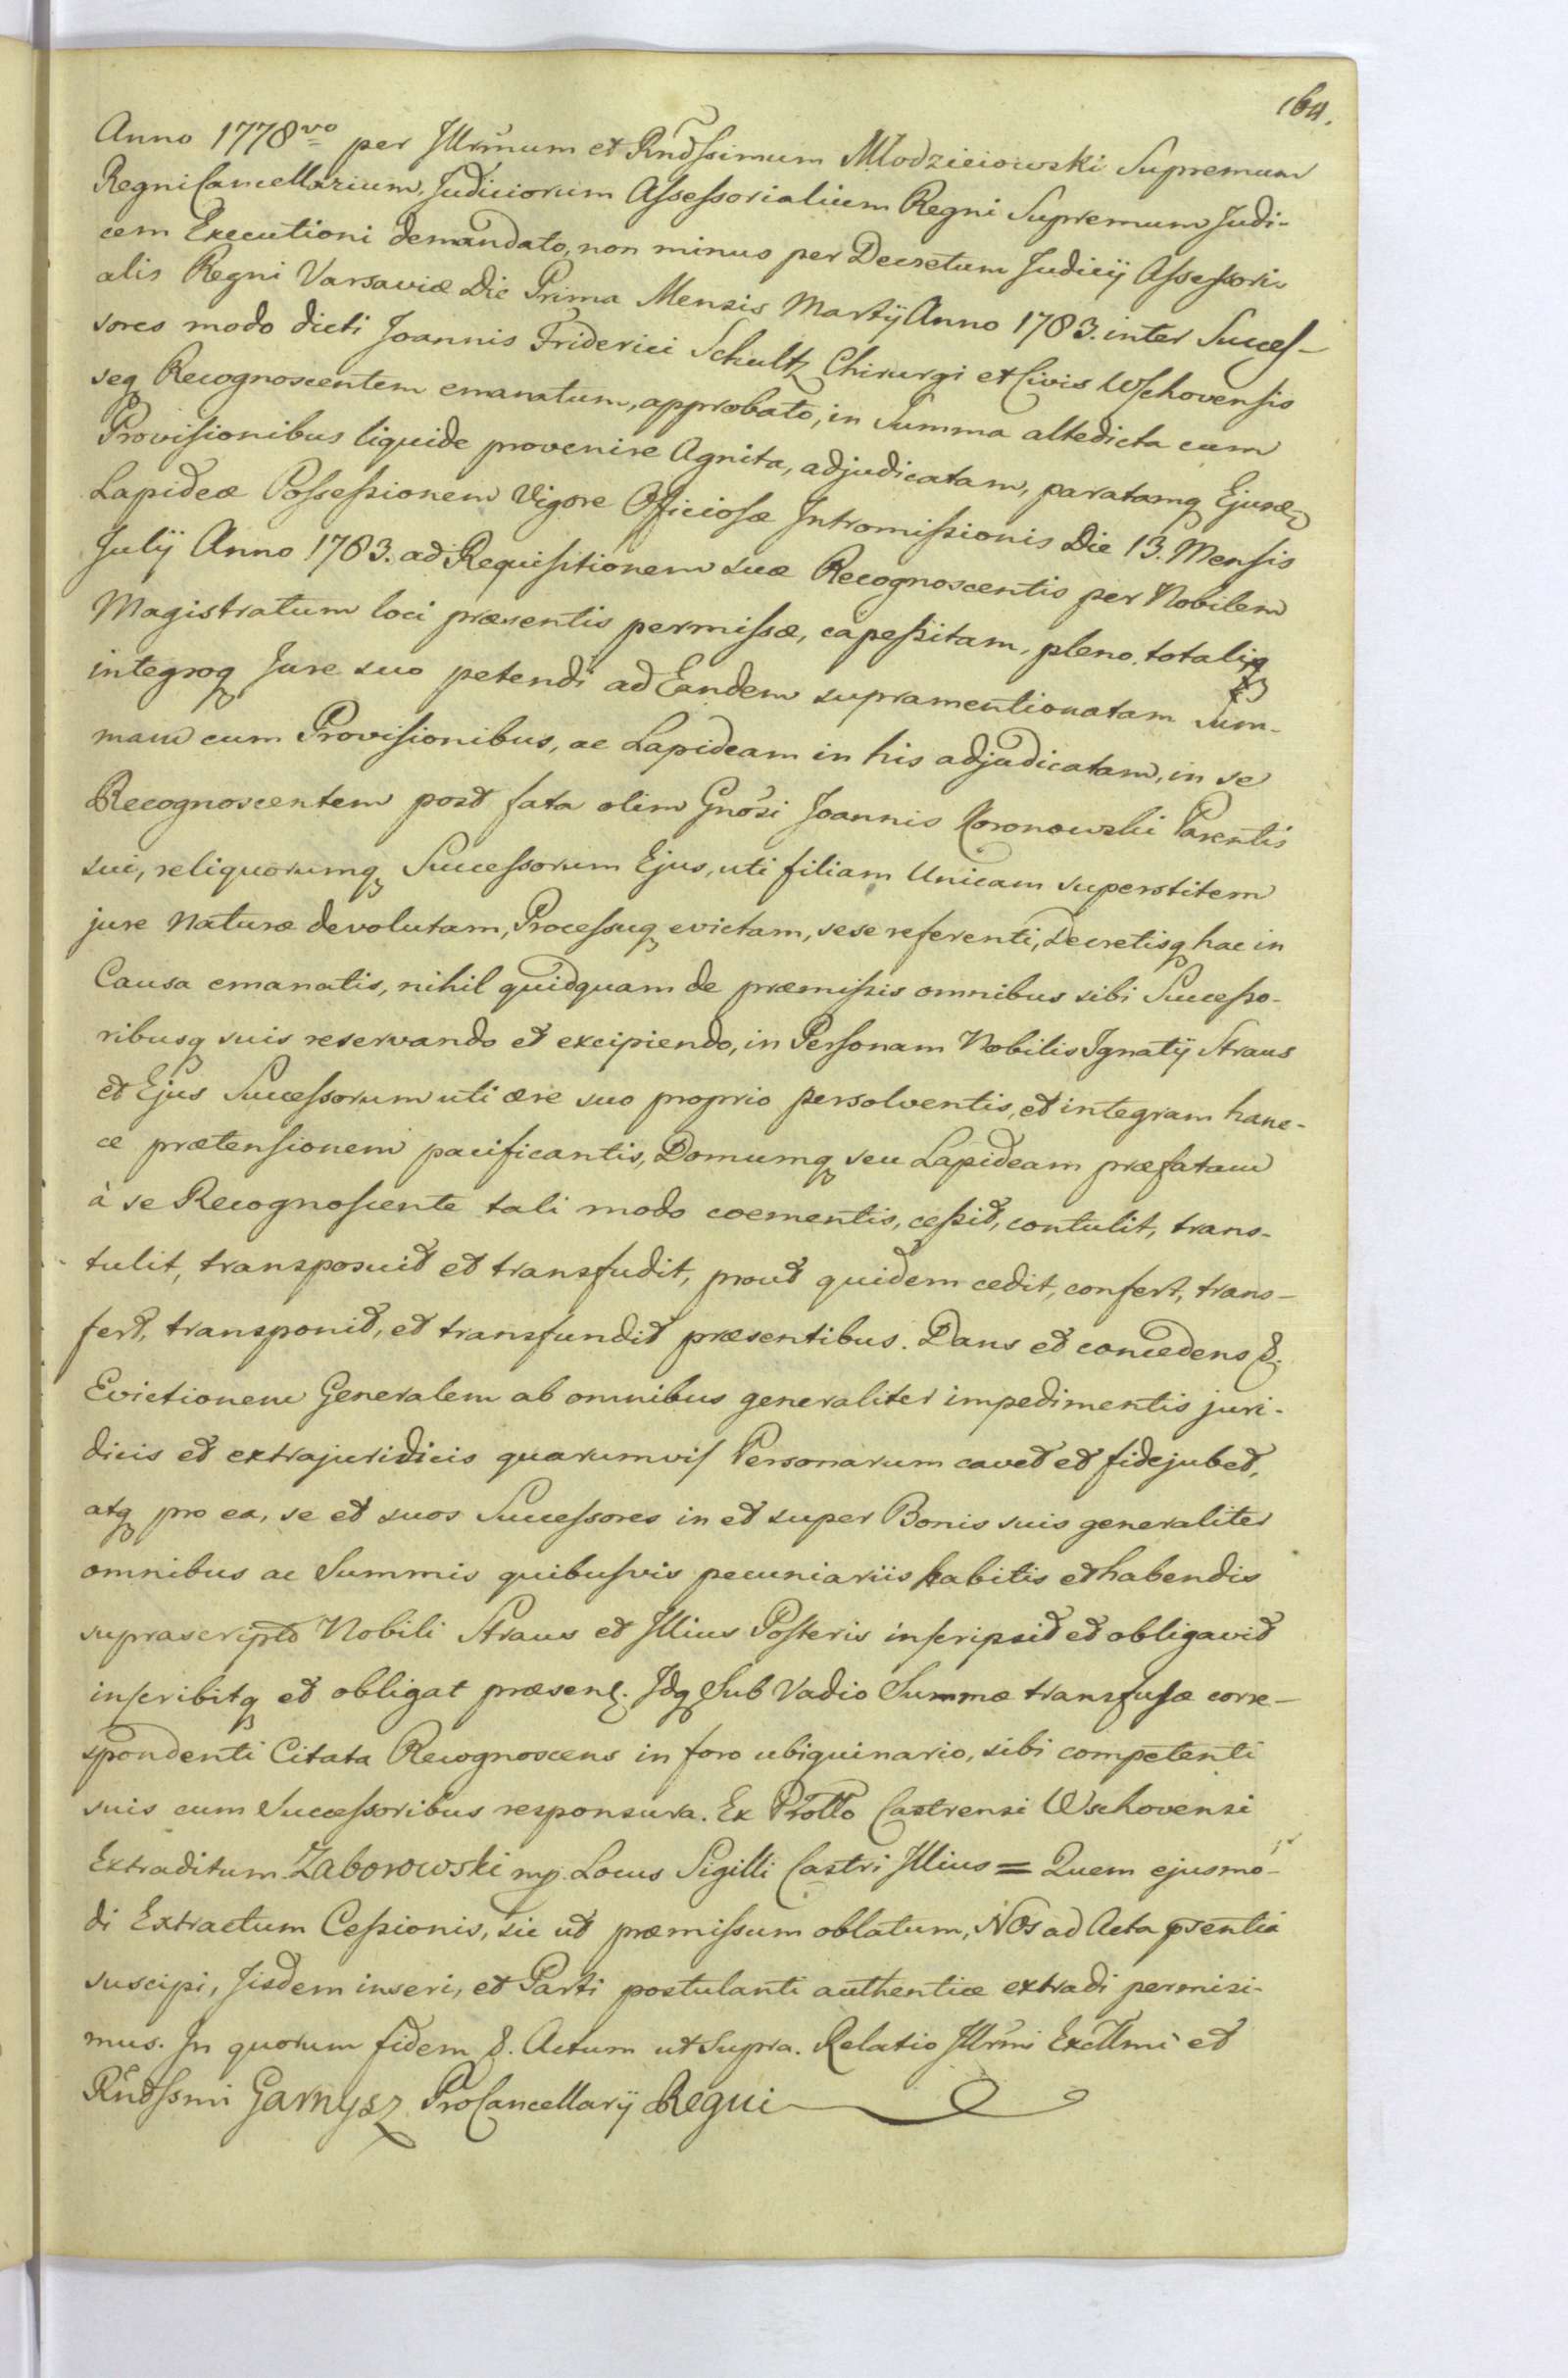 164.
Anno 1778vo per Illrmum et Rndssimum Młodzieiowski Supremum
Regni Cancellarium, Judiciorum Assessorialium Regni Supremum Judi-
cem Executioni demandato, non minus per Decretum Judicij Assessori-
alis Regni Varsaviæ Die Prima Mensis Martij Anno 1783. inter Succes-
sores modo dicti Joannis Friderici Schultz Chirurgi et Civis Wschovensis
seq Recognoscentem emanatum, approbato, in Summa altedicta cum
Provisionibus liquide provenire Agnita, adjudicatam, paratamq Ejusd
Lapideæ Possessionem Vigore Officiosæ Intromissionis Die 13. Mensis
Julij Anno 1783. ad Requisitionem suæ Recognoscentis per Nobilem
Magistratum loci præsentis permissæ, capessitam, pleno, totaliq
integroq Jure suo petendi ad Eandem supramentionatam Sum-
mam cum Provisionibus, ac Lapideam in his adjudicatam, in se
Recognoscentem post fata olim Gnosi Joannis Koronowski Parentis
sui, reliquorumq Successorum Ejus, uti filiam Unicam superstitem
jure Naturæ devolutam, Processuq evictam, sese referenti, Decretisq hac in
Causa emanatis, nihil quidquam de præmissis omnibus sibi Successo-
ribusq suis reservando et excipiendo, in Personam Nobilis Ignatij Straus
et Ejus Successorum uti ære suo proprio persolventis, et integram hanc-
ce prætensionem pacificantis, Domumq seu Lapideam præfatam
à se Recognoscente tali modo coementis, cessit, contulit, trans-
tulit, transposuit et transfudit, prout quidem cedit, confert, trans-
fert, transponit, et transfundit præsentibus. Dans et concedens &.
Evictionem Generalem ab omnibus generaliter impedimentis juri-
dicis et extrajuridicis quarumvis Personarum cavet et fidejubet,
atq pro ea, se et suos Successores in et super Bonis suis generaliter
omnibus ac Summis quibusvis pecuniariis habitis et habendis
suprascripto Nobili Straus et Illius Posteris inscripsit et obligavit
inscribitq et obligat præsent. Idq Sub Vadio Summæ transfusæ corre-
spondenti Citata Recognoscens in foro ubiquinario, sibi competenti
suis cum Successoribus responsura. Ex Protlo Castrensi Wschovensi
Extraditum Zaborowski mp. Locus Sigilli Castri Illius = Quem ejusmo-
di Extractum Cessionis, sic ut præmissum oblatum, Nos ad Acta psentia
suscipi, Iisdem inseri, et Parti postulanti authentice extradi permisi-
mus. In quorum fidem &. Actum ut supra. Relatio Illrmi Excllmi et
Rndssmi Garnysz ProCancellarij Regni